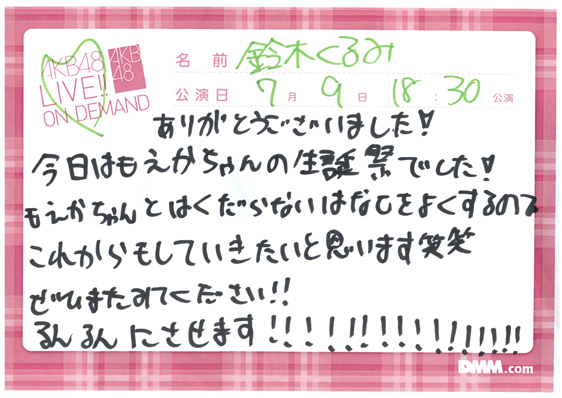 AKB48
LIVE!!
ON DEMAND
AKB
48
名前 鈴木くるみ
公演日 7月9日 18:30公演
ありがとうございました!
今日はもえかちゃんの生誕祭でした!
もえかちゃんとはくだらないはなしをよくするので
これからもしていきたいと思います笑笑
ぜひまたみてください!!
るんるんにさせます!!!!!!!!!!!!!!!!
DMM.com